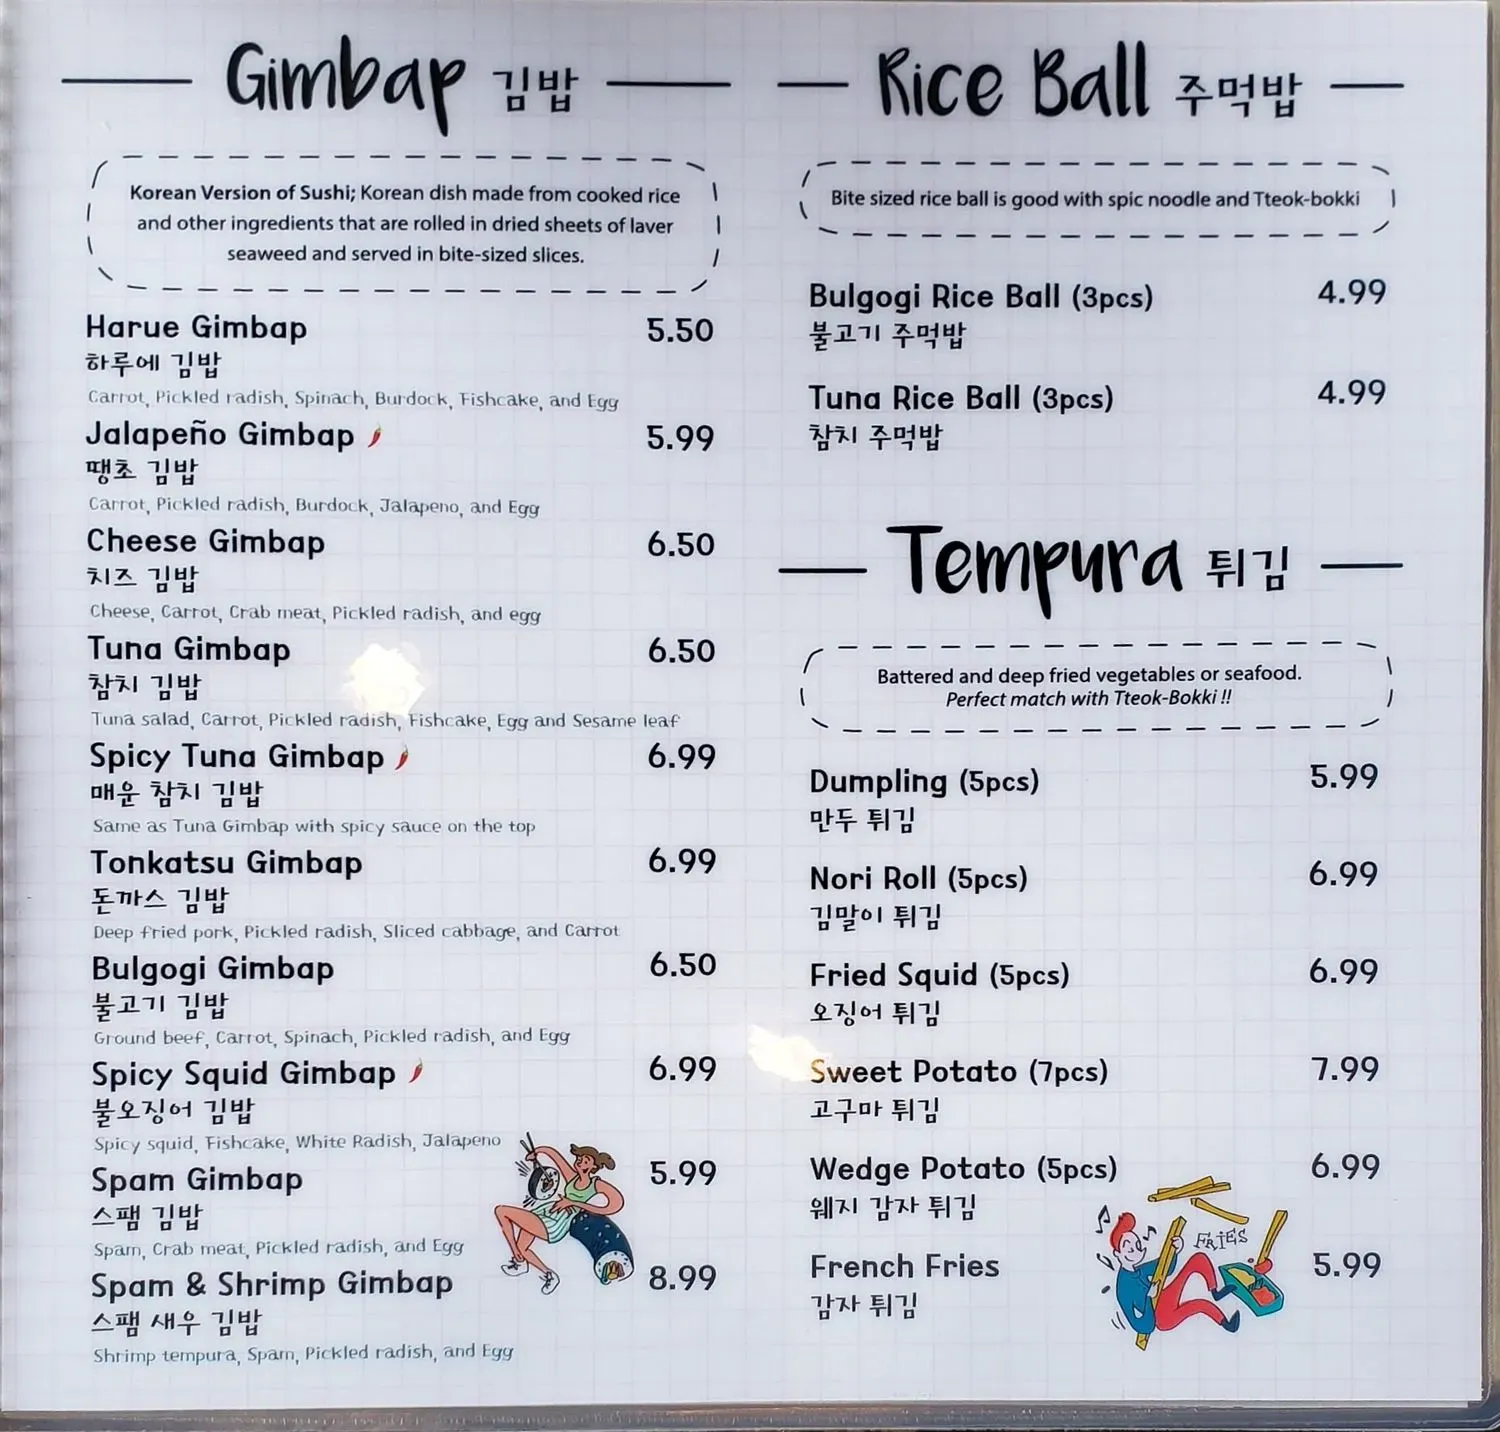 Gimbap 김밥
Korean Version of Sushi; Korean dish made from cooked rice
and other ingredients that are rolled in dried sheets of laver
seaweed and served in bite-sized slices.
Harue Gimbap 5.50
하루에 김밥
Carrot, Pickled radish, Spinach, Burdock, Fishcake, and Egg
Jalapeño Gimbap 5.99
땡초 김밥
Carrot, Pickled radish, Burdock, Jalapeno, and Egg
Cheese Gimbap 6.50
치즈 김밥
Cheese, Carrot, Crab meat, Pickled radish, and egg
Tuna Gimbap 6.50
참치 김밥
Tuna salad, Carrot, Pickled radish, Fishcake, Egg and Sesame leaf
Spicy Tuna Gimbap 6.99
매운 참치 김밥
Same as Tuna Gimbap with spicy sauce on the top
Tonkatsu Gimbap 6.99
돈까스 김밥
Deep fried pork, Pickled radish, Sliced cabbage, and Carrot
Bulgogi Gimbap 6.50
불고기 김밥
Ground beef, Carrot, Spinach, Pickled radish, and Egg
Spicy Squid Gimbap 6.99
불오징어 김밥
Spicy squid, Fishcake, White Radish, Jalapeno
Spam Gimbap 5.99
스팸 김밥
Spam, Crab meat, Pickled radish, and Egg
Spam & Shrimp Gimbap 8.99
스팸 새우 김밥
Shrimp tempura, Spam, Pickled radish, and Egg
Rice Ball 주먹밥
Bite sized rice ball is good with spic noodle and Tteok-bokki
Bulgogi Rice Ball (3pcs) 4.99
불고기 주먹밥
Tuna Rice Ball (3pcs) 4.99
참치 주먹밥
Tempura 튀김
Battered and deep fried vegetables or seafood.
Perfect match with Tteok-Bokki !!
Dumpling (5pcs) 5.99
만두 튀김
Nori Roll (5pcs) 6.99
김말이 튀김
Fried Squid (5pcs) 6.99
오징어 튀김
Sweet Potato (7pcs) 7.99
고구마 튀김
Wedge Potato (5pcs) 6.99
웨지 감자 튀김
FRIES
French Fries 5.99
감자 튀김